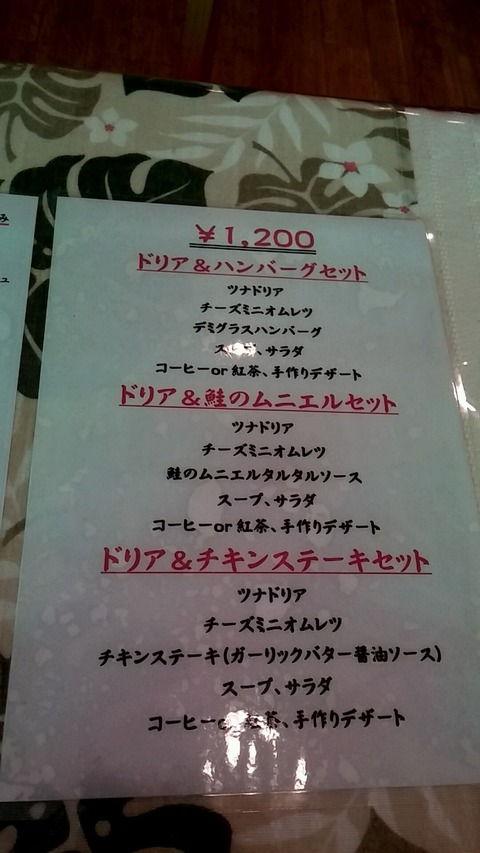 み
ュ
￥1,200
ドリア＆ハンバーグセット
ツナドリア
チーズミニオムレツ
デミグラスハンバーグ
スープ、サラダ
コーヒーor紅茶、手作りデザート
ドリア＆鮭のムニエルセット
ツナドリア
チーズミニオムレツ
鮭のムニエルタルタルソース
スープ、サラダ
コーヒーor紅茶、手作りデザート
ドリア＆チキンステーキセット
ツナドリア
チーズミニオムレツ
チキンステーキ(ガーリックバター醤油ソース)
スープ、サラダ
コーヒーor紅茶、手作りデザート